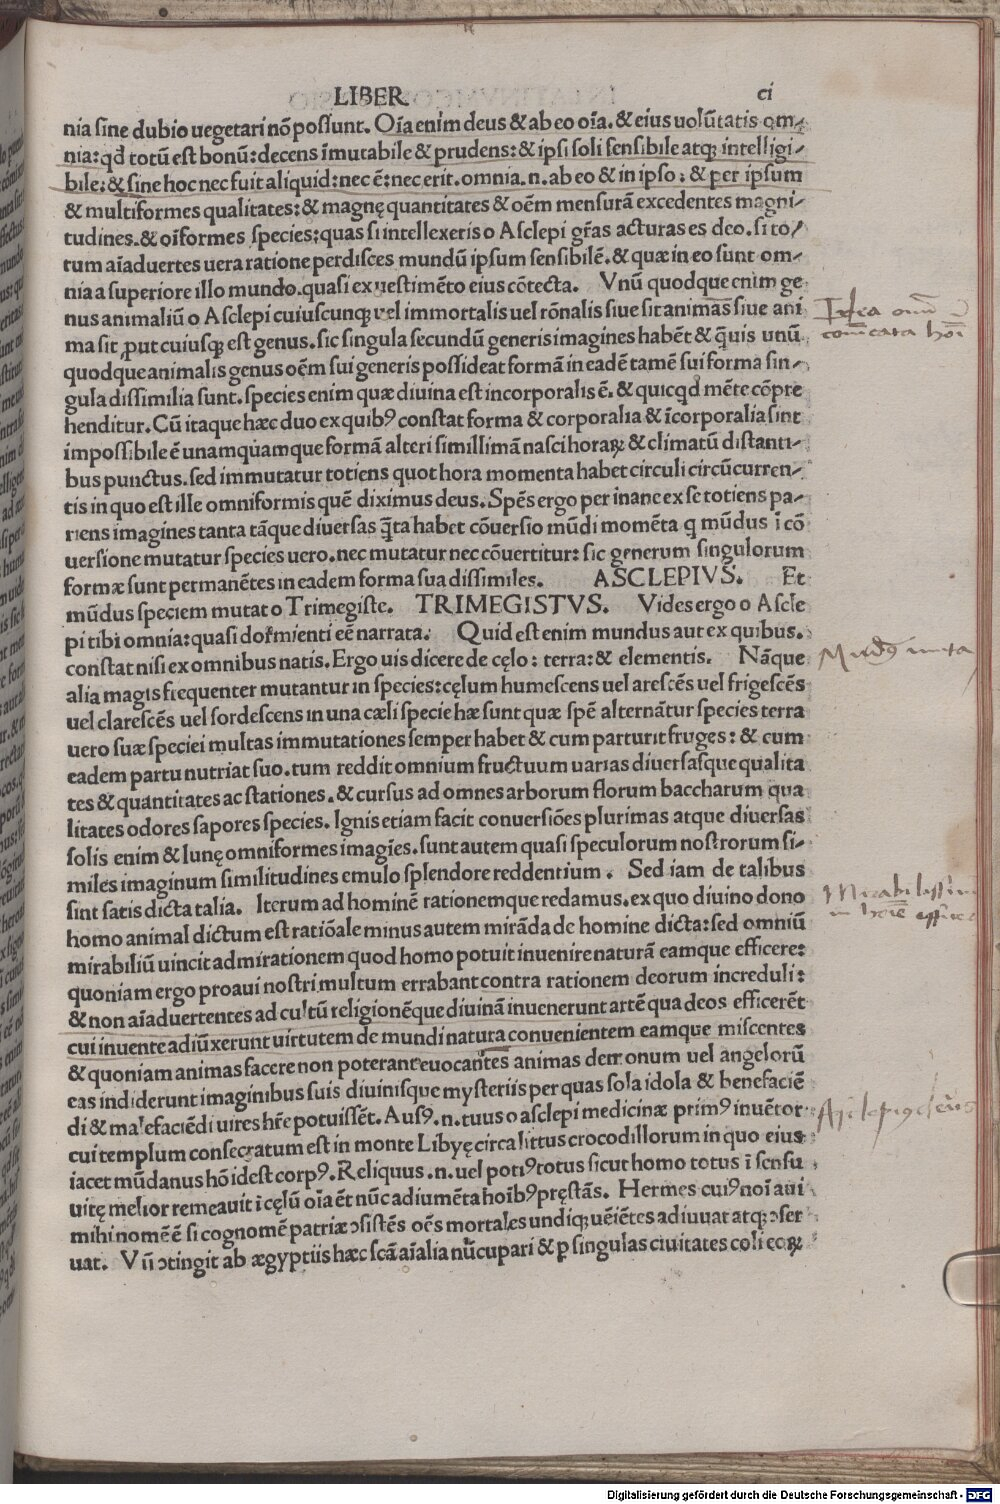 LIBER. ci
nia sine dubio uegetari nō possunt. Oīa enim deus & ab eo oīa. & eius uolūtatis om-
nia: qđ totū est bonū: decens īmutabile & prudens: & ipsi soli sensibile atq; intelligi-
bile: & sine hoc nec fuit aliquid: nec ē: nec erit. omnia .n. ab eo & in ipso: & per ipsum
& multiformes qualitates: & magnę quantitates & oēm mensurā excedentes magni-
tudines. & oīformes species: quas si intellexeris o Asclepi gr̄as acturas es deo. si to-
tum aīaduertes uera ratione perdisces mundū ipsum sensibilē. & quæ in eo sunt om-
nia a superiore illo mundo. quasi ex uestimēto eius cōtecta. Vnū quodque enim ge
nus animaliū o Asclepi cuiuscunq; uel immortalis uel rōnalis siue sit animans siue ani
Idea
ma sit ꝓut cuiusq; est genus. sic singula secundū generis imagines habēt & q̄uis unū
quodque animalis genus oēm sui generis possideat formā in eadē tamē sui forma sin-
gula dissimilia sunt. species enim quæ diuina est incorporalis ē. & quicqđ mēte cōpre
henditur. Cū itaque hæc duo ex quibꝰ constat forma & corporalia & īcorporalia sint
impossibile ē unamquamque formā alteri simillimā nasci horaꝝ & climatū distanti-
bus punctus. sed immutatur totiens quot hora momenta habet circuli circūcurren-
tis in quo est ille omniformis quē diximus deus. Spēs ergo per inane ex se totiens pa-
riens imagines tanta tāque diuersas q̄ta habet cōuersio mūdi momēta q mūdus ī cō
uersione mutatur species uero. nec mutatur nec cōuertitur: sic generum singulorum
formæ sunt permanētes in eadem forma sua dissimiles. ASCLEPIVS. Et
mūdus speciem mutat o Trimegiste. TRIMEGISTVS. Vides ergo o Ascle
pi tibi omnia: quasi dormienti eē narrata. Quid est enim mundus aut ex quibus.
constat nisi ex omnibus natis. Ergo uis dicere de cęlo: terra: & elementis. Nāque
alia magis frequenter mutantur in species: cęlum humescens uel arescēs uel frigescēs
uel clarescēs uel sordescens in una cæli specie hæ sunt quæ spē alternātur species terra
uero suæ speciei multas immutationes semper habet & cum parturit fruges: & cum
eadem partu nutriat suo. tum reddit omnium fructuum uarias diuersasque qualita
tes & quantitates ac stationes. & cursus ad omnes arborum florum baccharum qua
litates odores sapores species. Ignis etiam facit conuersiōes plurimas atque diuersas
solis enim & lunę omniformes imagīes. sunt autem quasi speculorum nostrorum si-
miles imaginum similitudines emulo splendore reddentium. Sed iam de talibus
sint satis dicta talia. Iterum ad hominē rationemque redamus. ex quo diuino dono
homo animal dictum est ratiōale minus autem mirāda de homine dicta: sed omniū
mirabiliū uincit admirationem quod homo potuit inuenire naturā eamque efficere:
quoniam ergo proaui nostri multum errabant contra rationem deorum increduli:
& non aīaduertentes ad cultū religionēque diuinā inuenerunt artē qua deos efficerēt
cui inuente adiūxerunt uirtutem de mundi natura conuenientem eamque miscentes
& quoniam animas facere non poterant euocantes animas demonum uel angelorū
eas indiderunt imaginibus suis diuinisque mysteriis per quas sola idola & benefaciē
di & malefaciēdi uires hr̄e potuissēt. Ausꝰ .n. tuus o asclepi medicinæ primꝰ inuētor
cui templum consecratum est in monte Libyę circa littus crocodillorum in quo eius
iacet mūdanus hō idest corpꝰ. Reliquus .n. uel potiꝰ totus sicut homo totus ī sensu
uitę melior remeauit ī cęlū oīa ēt nūc adiumēta hoībꝰ pręstās. Hermes cuiꝰ noī aui
mihi nomē ē si cognomē patriæ ↄsistēs oēs mortales undiq; uēiētes adiuuat atq; ↄser
uat. Vñ ↄtingit ab ægyptiis hæc scā aīalia nūcupari & ꝑ singulas ciuitates coli eoꝝ
Digitalisierung gefördert durch die Deutsche Forschungsgemeinschaft - DFG